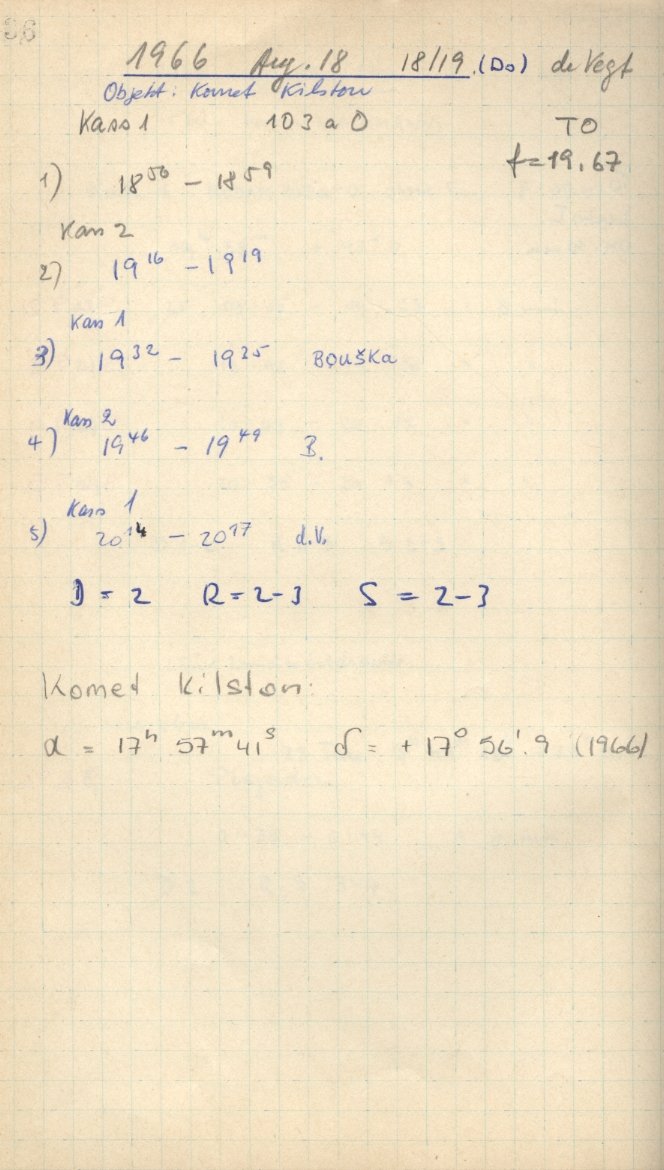 36
1966 Aug. 18 18/19. (Do) de Vegt
Objekt: Komet Kilston
Kass 1 103 a O TO
f = 19.67
1) 18⁵⁶ – 18⁵⁹
Kass 2
2) 19¹⁶ – 19¹⁹
Kass 1
3) 19³² – 19³⁵ BOUŠKA
Kass 2
4) 19⁴⁶ – 19⁴⁹ B.
Kass 1
5) 20¹⁴ – 20¹⁷ d.V.
D = 2 R = 2-3 S = 2-3
Komet Kilston:
α = 17ʰ 57ᵐ 41ˢ δ = + 17° 56'.9 (1966)